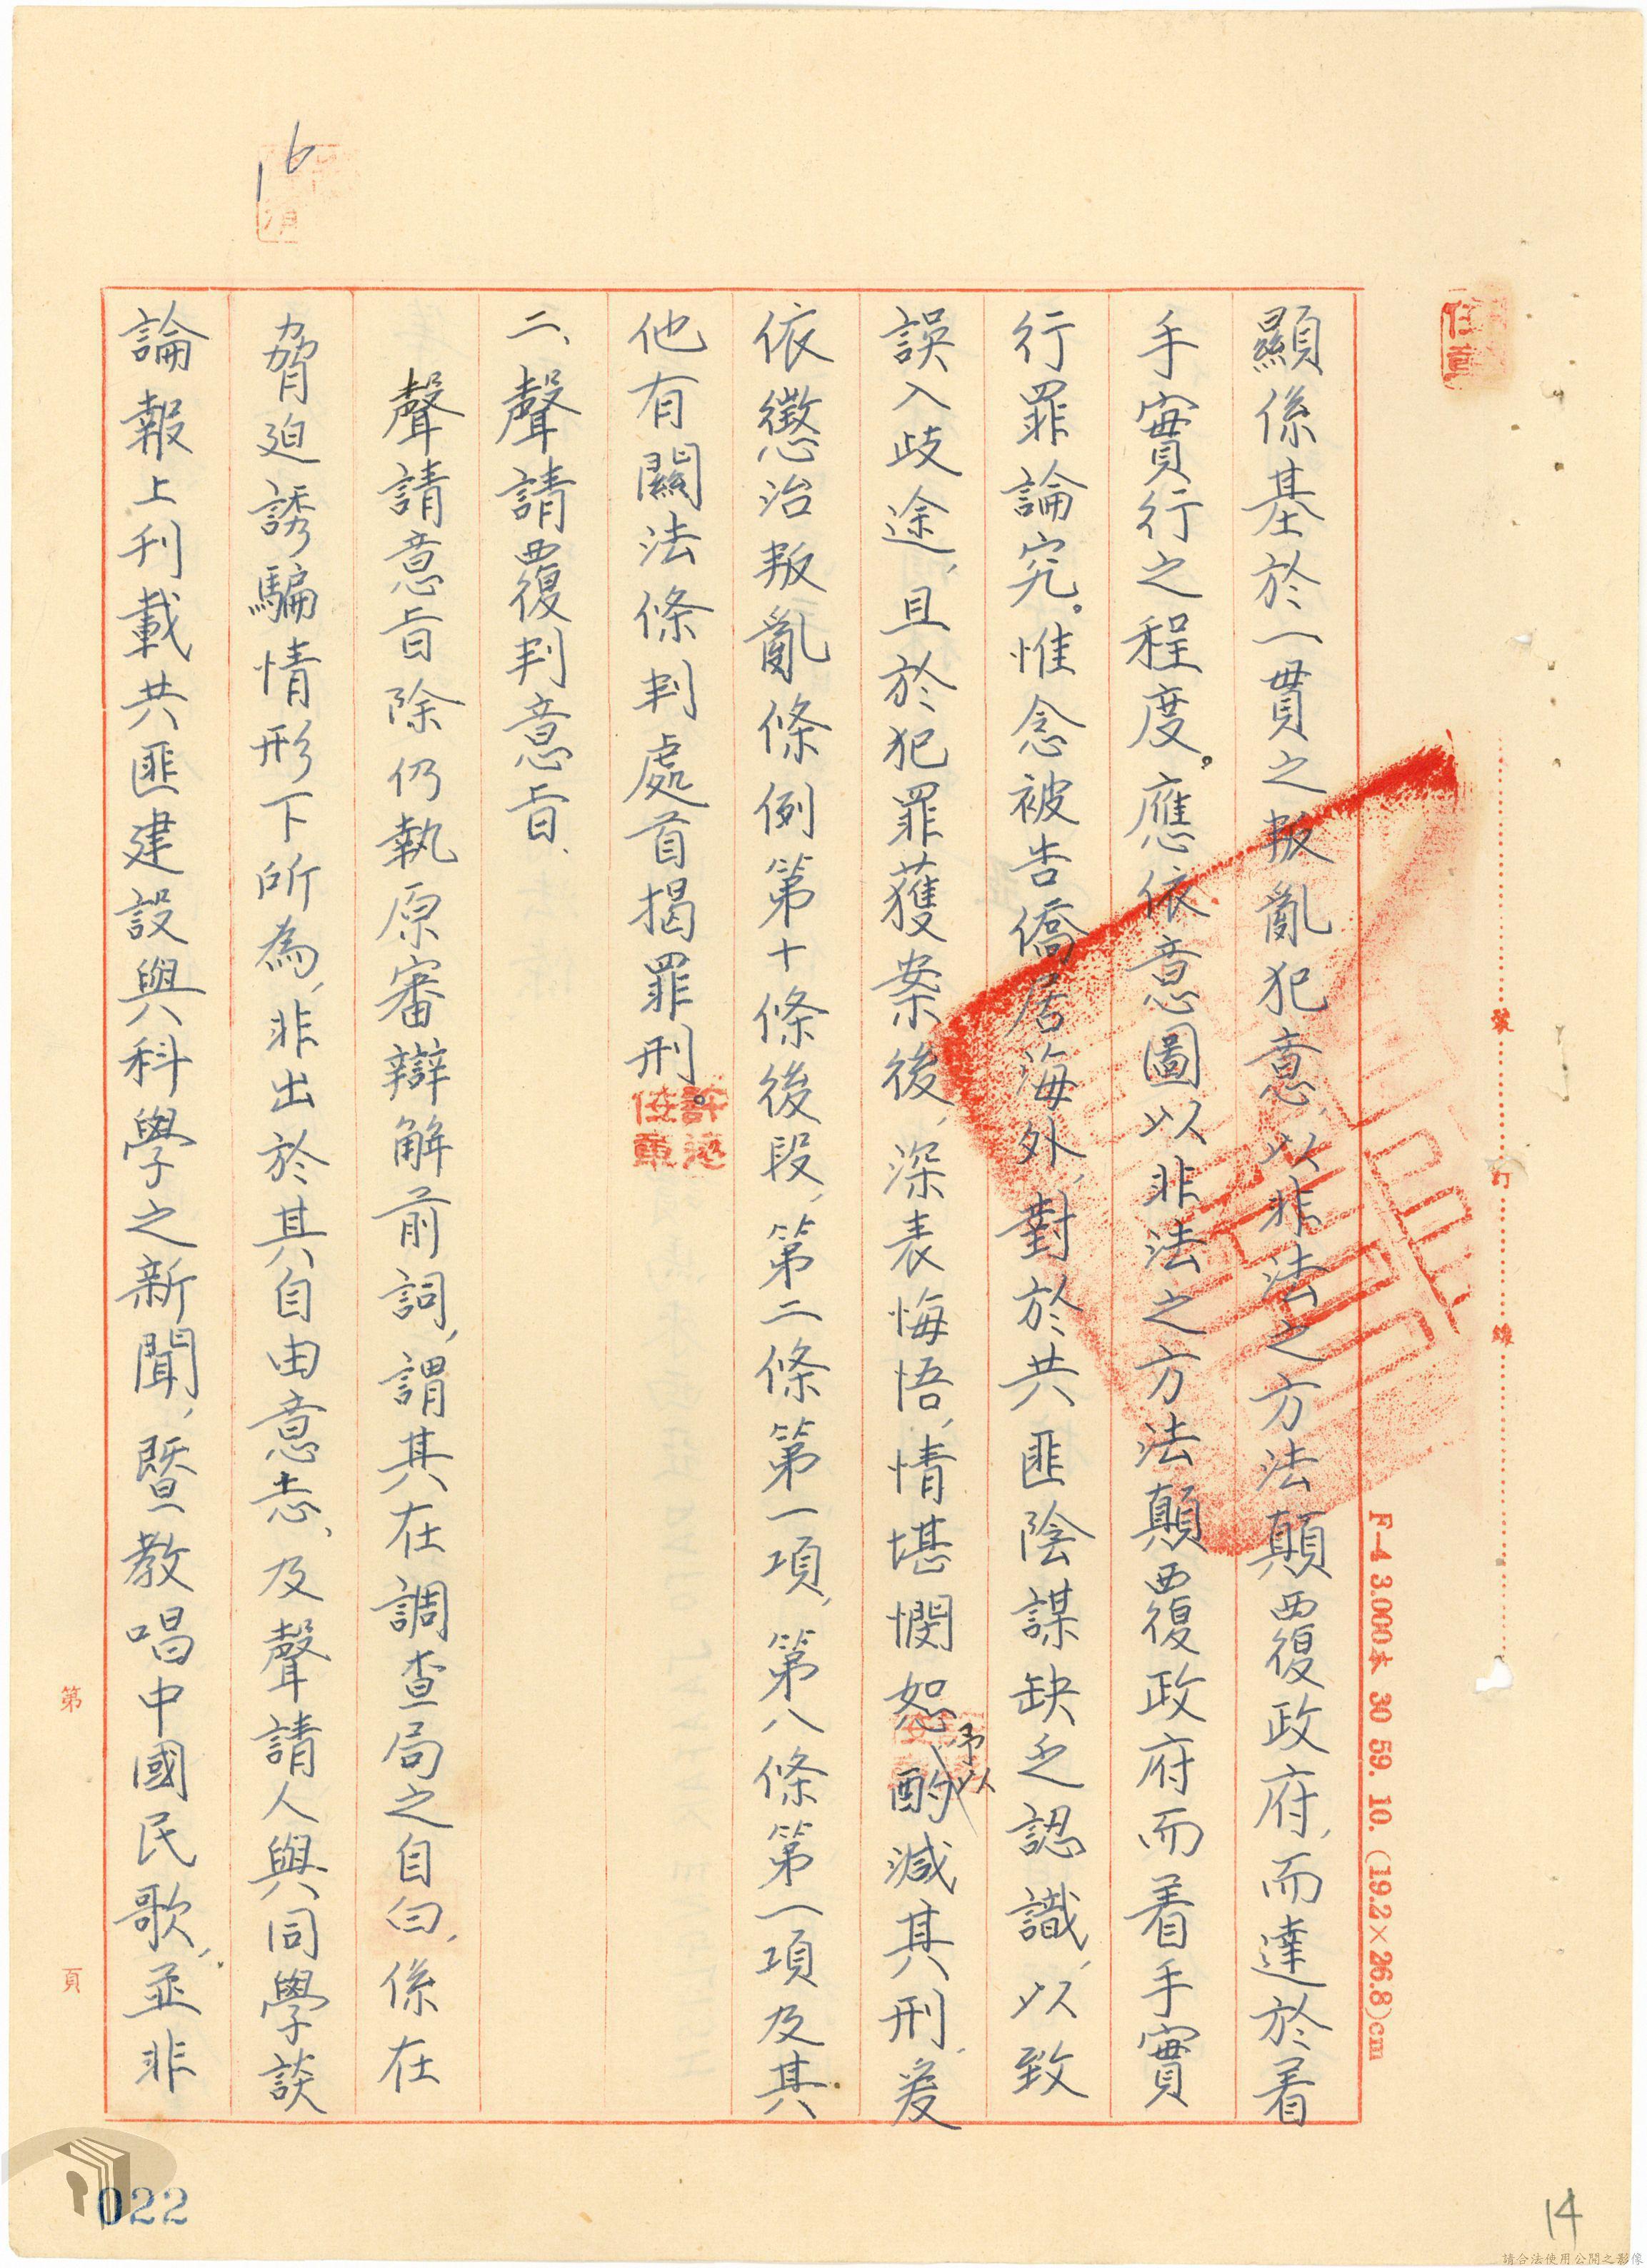 顯係基於一貫之叛亂犯意，以非法之方法顛覆政府，而達於着
手實行之程度。應依意圖以非法之方法顛覆政府而着手實
行罪論究。惟念被告僑居海外，對於共匪陰謀缺乏認識，以致
誤入歧途，且於犯罪獲案後，深表悔悟，情堪憫恕，酌減其刑，爰
予以
依懲治叛亂條例第十條後段，第二條第一項，第八條第一項及其
他有關法條判處首揭罪刑。
二、聲請覆判意旨．
聲請意旨除仍執原審辯解前詞，謂其在調查局之自白，係在
脅迫誘騙情形下所為，非出於其自由意志、及聲請人與同學談
論報上刊載共匪建設與科學之新聞，暨教唱中國民歌，並非
16
裝
訂
線
F-4 3.000本 30 59. 10. (19.2×26.8)cm
第
頁
022
14
請合法使用公開之影像